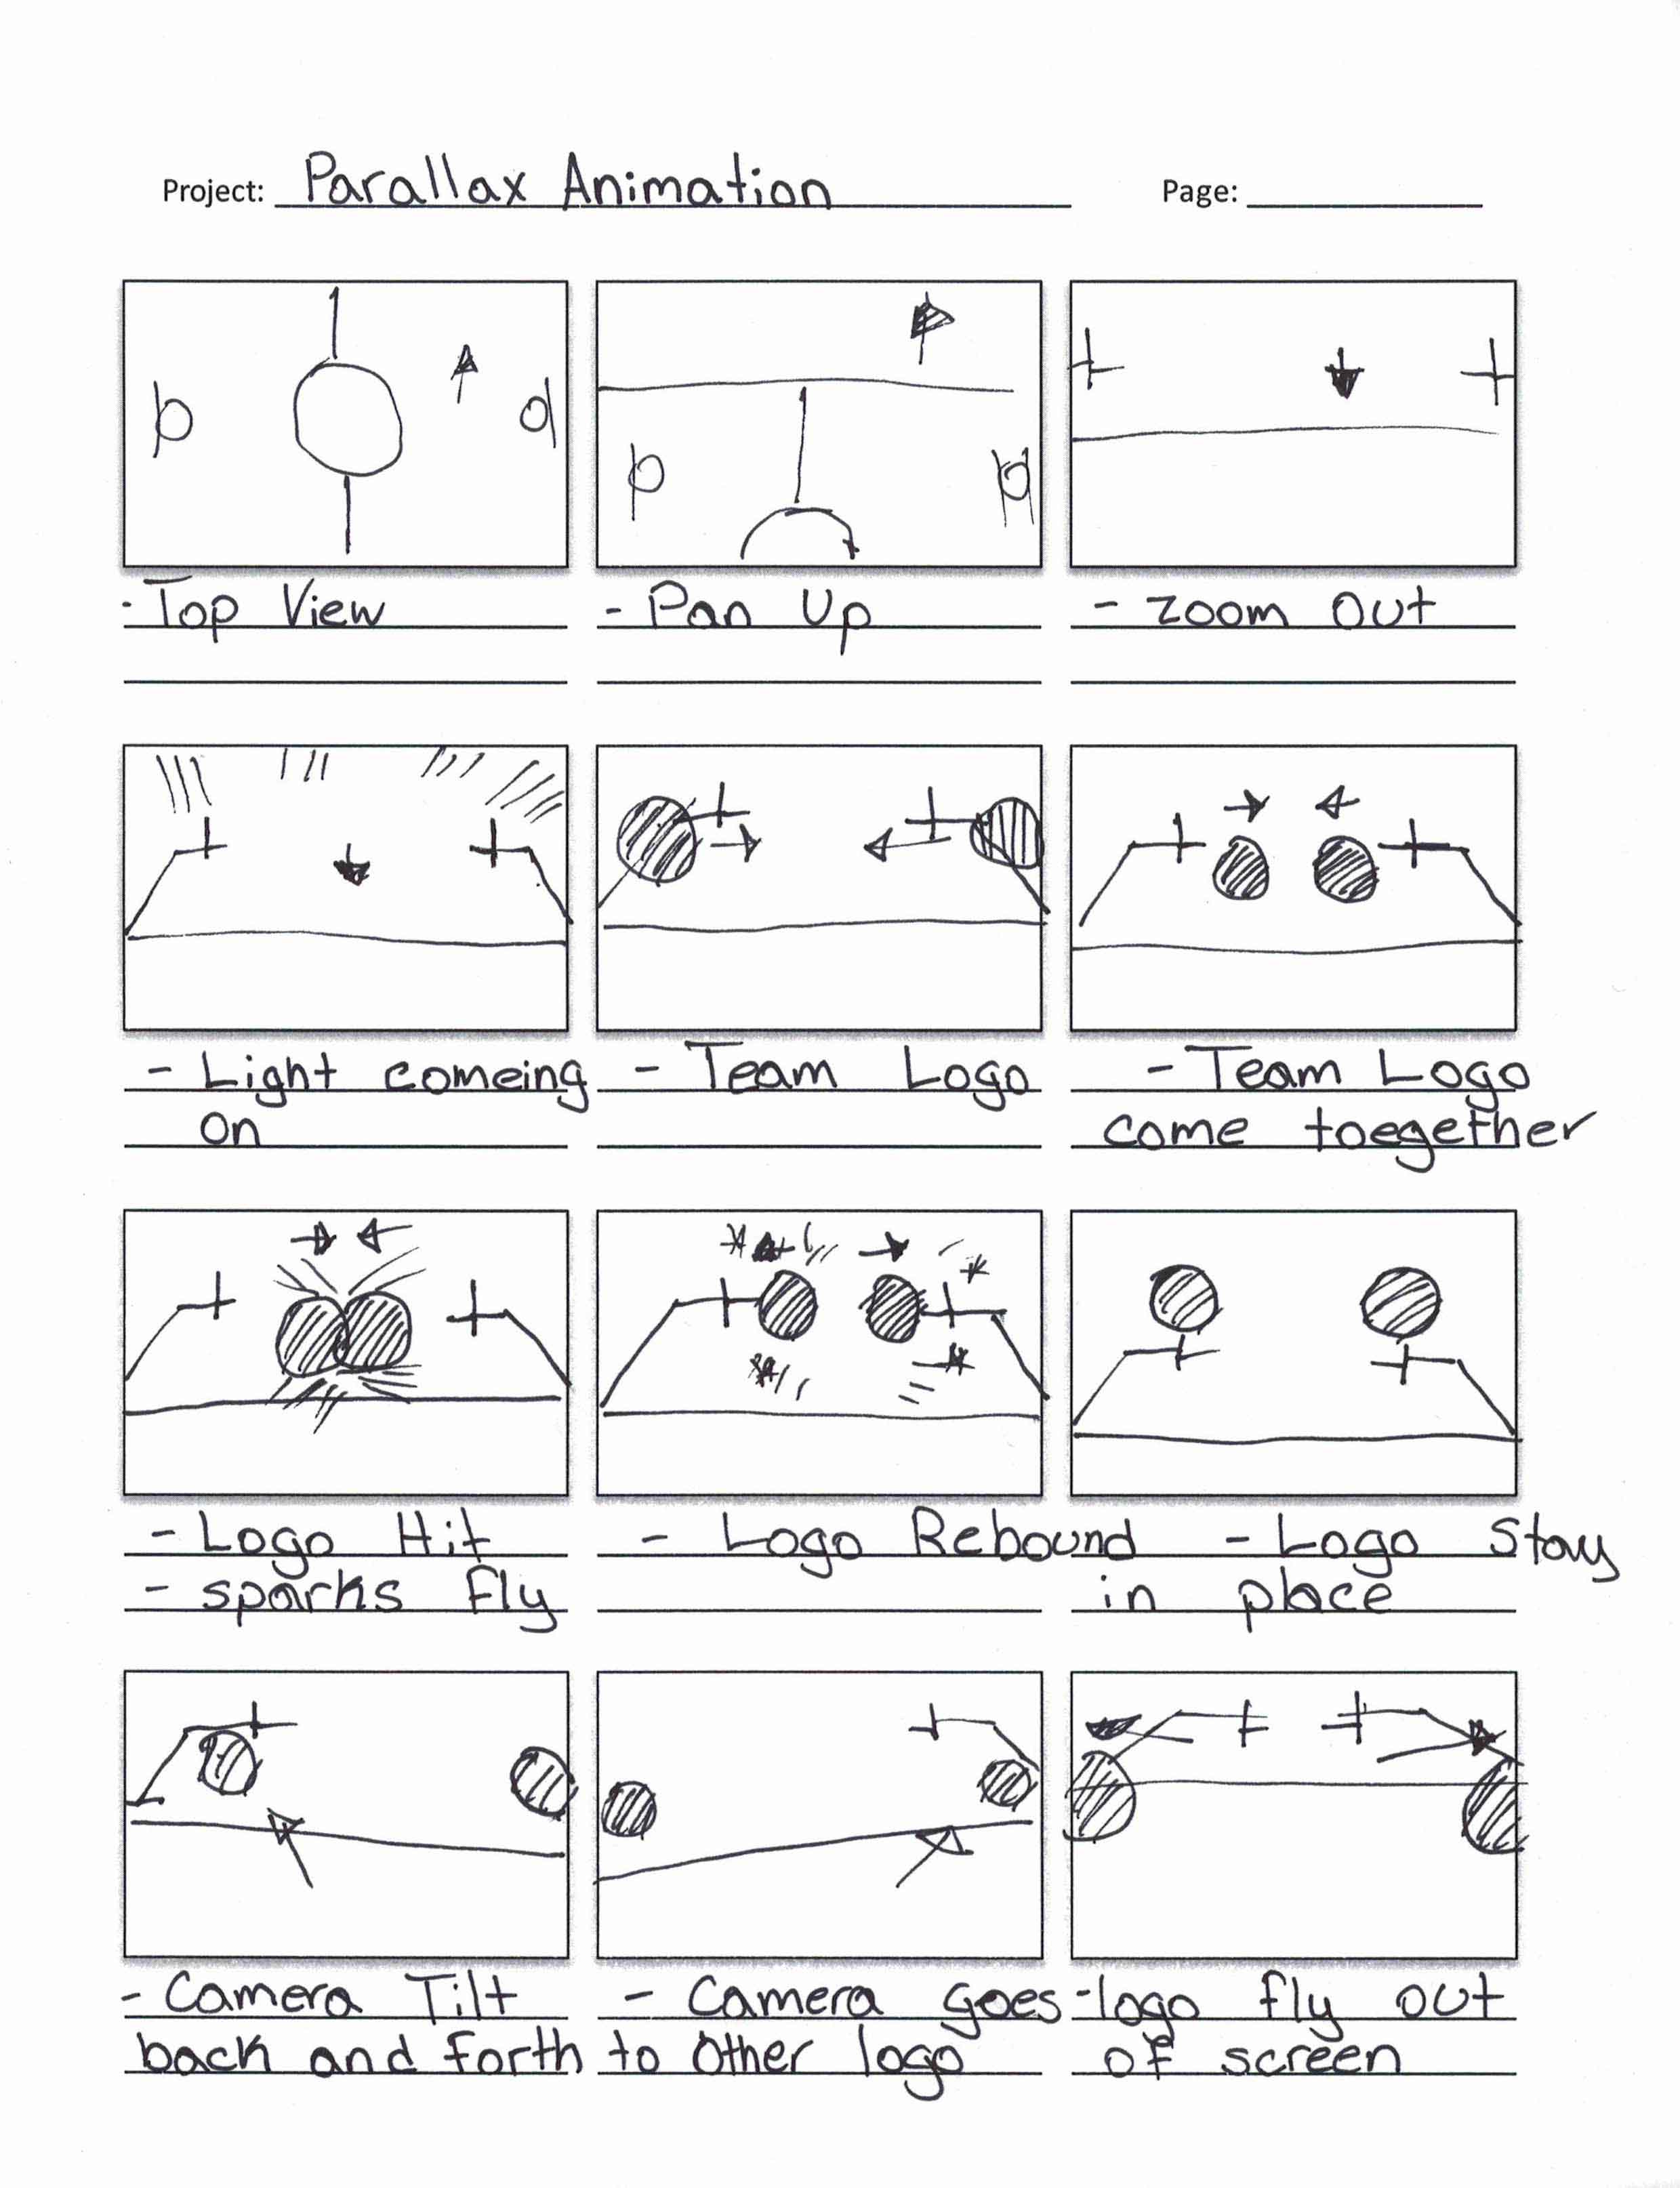 Project: Parallax Animation Page:
- Top View
- Pan Up
- Zoom Out
- Light comeing
on
- Team Logo
- Team Logo
come toegether
- Logo Hit
- sparks Fly
- Logo Rebound
- Logo Stay
in place
- Camera Tilt
back and forth
- Camera goes
to other logo
- logo fly out
of screen